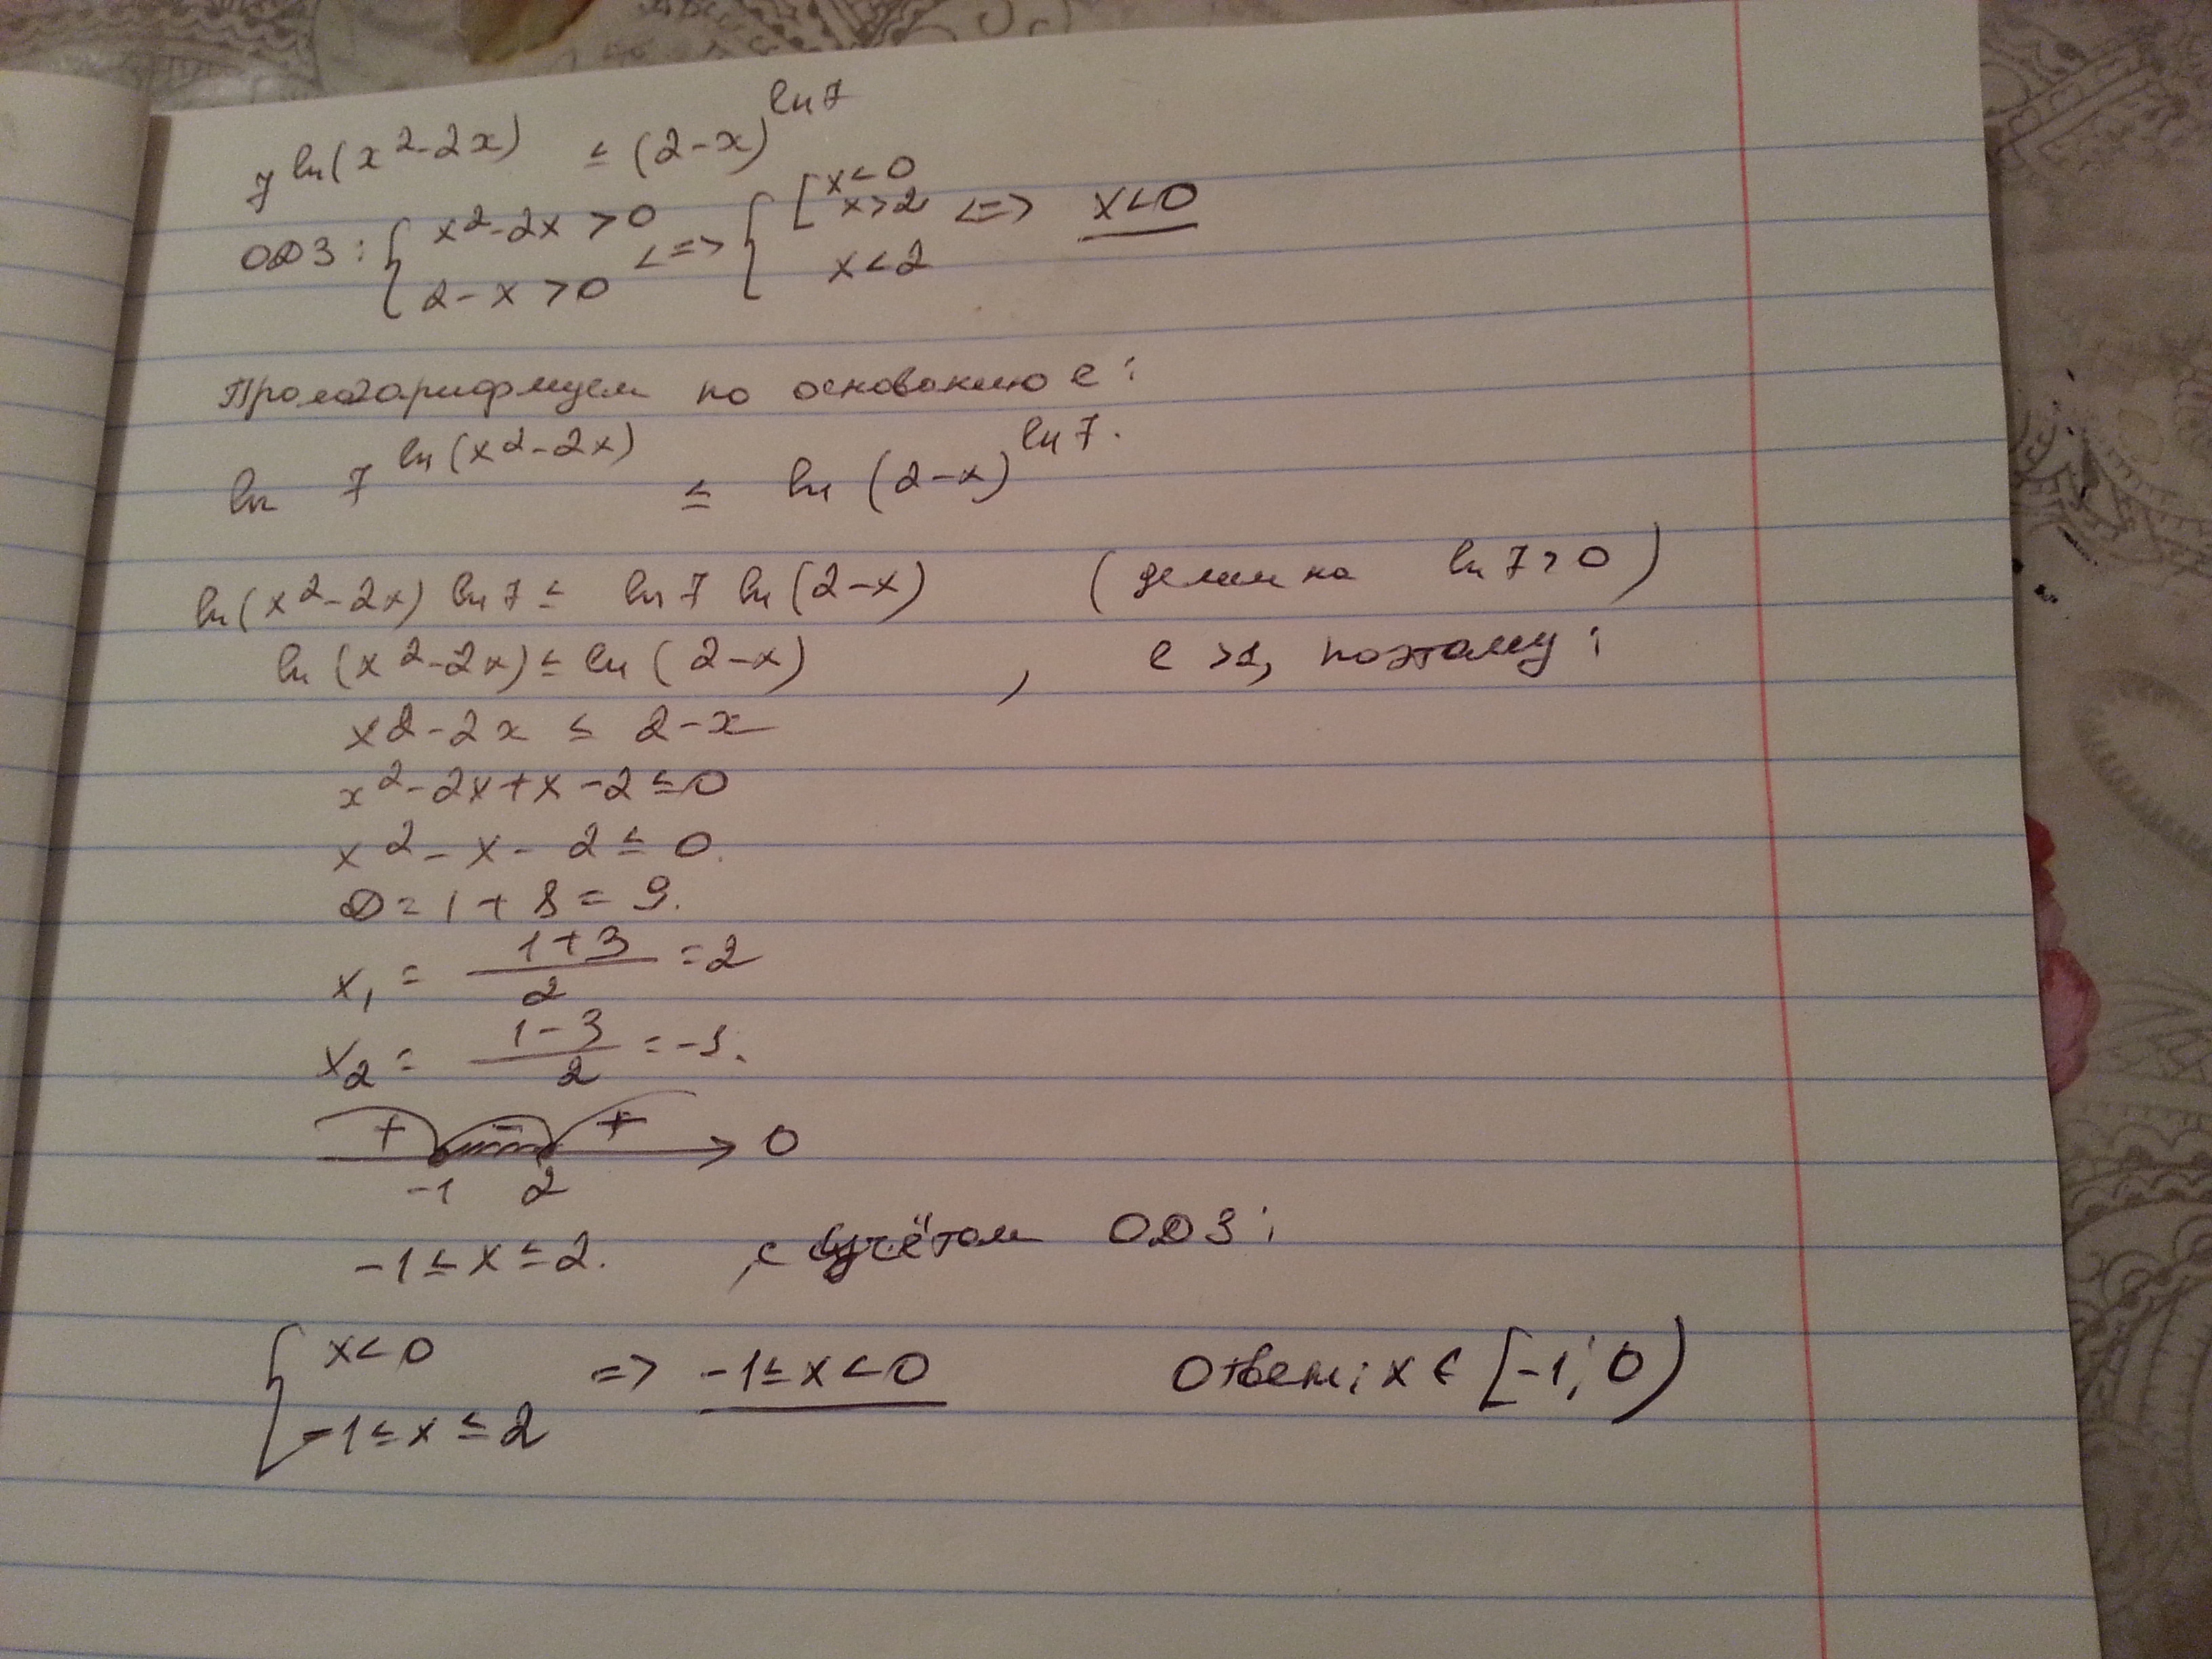 7^ln(x²-2x) ≤ (2-x)^ln7
ОДЗ: { x²-2x>0 2-x>0 <=> { [ x<0 x>2 x<2 <=> x<0
Прологарифмуем по основанию e:
ln 7^ln(x²-2x) ≤ ln (2-x)^ln7.
ln(x²-2x) ln7 ≤ ln7 ln(2-x) (делим на ln7>0)
ln(x²-2x) ≤ ln(2-x) , e>1, поэтому:
x²-2x ≤ 2-x
x²-2x+x-2≤0
x²-x-2≤0.
D=1+8=9.
x₁ = (1+3)/2 = 2
x₂ = (1-3)/2 = -1.
+ - + 0
-1 2
-1≤x≤2. , с учётом ОДЗ:
{ x<0 -1≤x≤2 => -1≤x<0 Ответ: x ∈ [-1; 0)